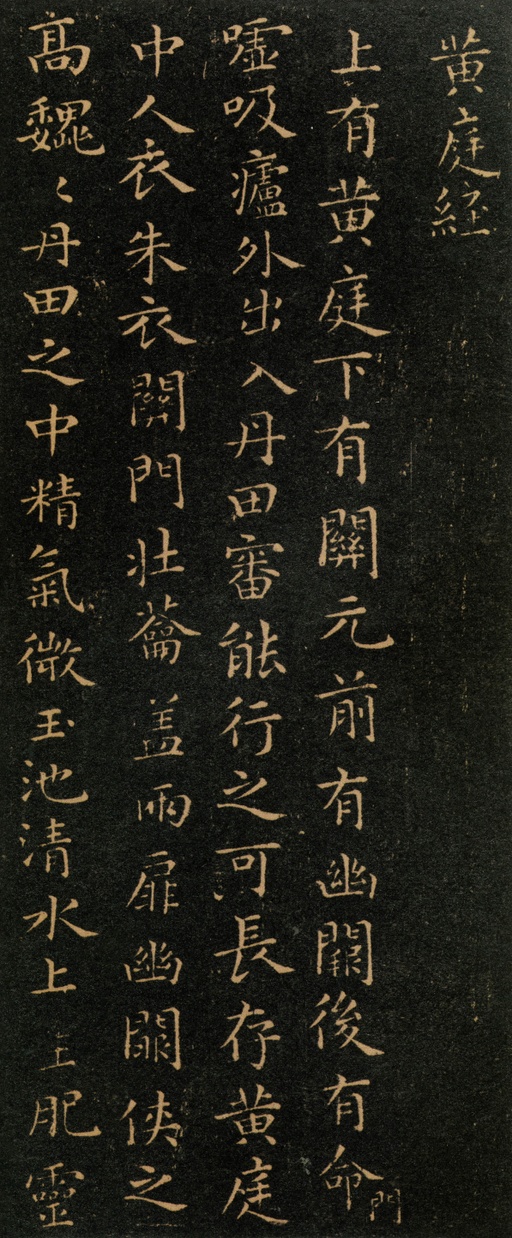 黃庭經
上有黃庭下有關元前有幽闕後有命門
噓吸廬外出入丹田審能行之可長存黃庭
中人衣朱衣關門壯蘥蓋兩扉幽闕俠之
高巍〻丹田之中精氣微玉池清水上生肥靈